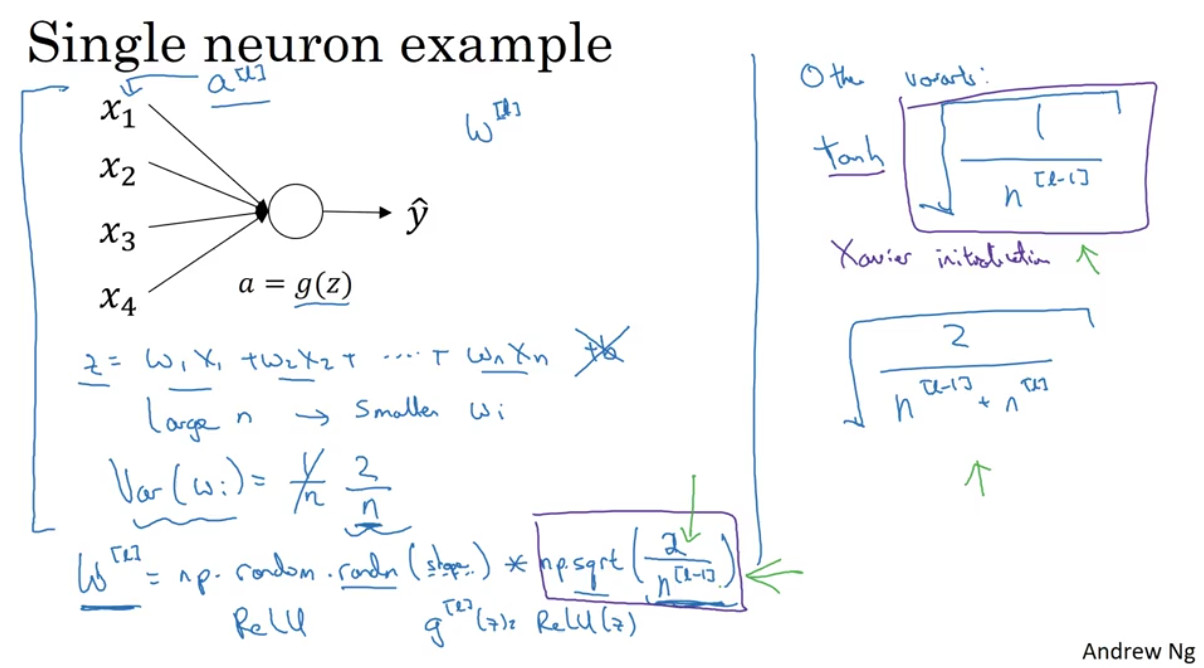 Single neuron example
a^[l]
x₁
x₂
x₃
x₄
ŷ
a = g(z)
W^[l]
z = w₁x₁ + w₂x₂ + ..... + wₙxₙ +b
Large n → Smaller wᵢ
Var(wᵢ) = 1/n 2/n
W^[l] = np.random.randn(shape) * np.sqrt(2/n^[l-1])
ReLU g^[l](z) = ReLU(z)
Other variants:
tanh √(1/n^[l-1])
Xavier initialization ↑
√(2/(n^[l-1] + n^[l]))
↑
Andrew Ng